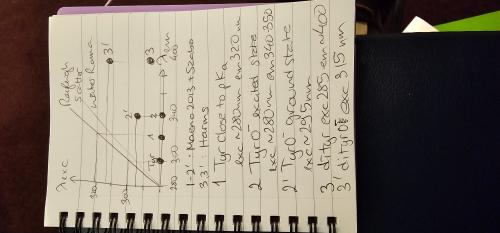 λexc
Rayleigh
scatter
Water Raman
3'
3
2'
2
1
Tyr
λem
320
300
280 300 340 400
1-2': Maeno 2013 + Szabo
3.3': Harms
1 Tyr close to pKa
exc ~280nm em 320 nm
2 TyrO⁻ excited state
exc ~280nm em 340-350
2' TyrO⁻ ground state
exc ~295nm
3 dityr exc 285 em ~400
3' dityrO⁻ exc 315nm